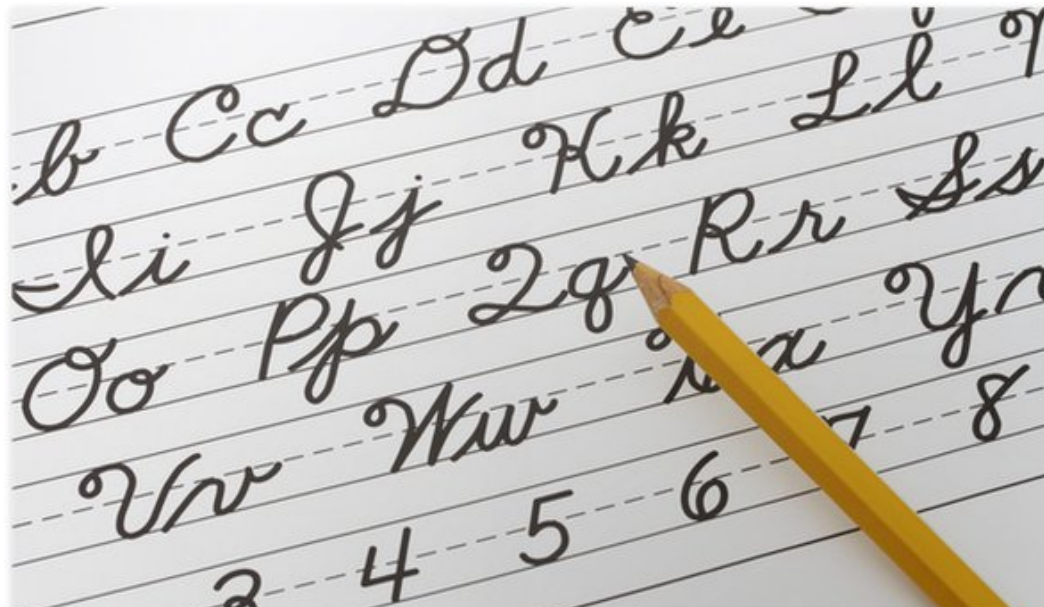 b Cc Dd Ee
Ii Jj Kk Ll
Oo Pp Qq Rr Ss
Vv Ww Xx Yy
3 4 5 6 7 8